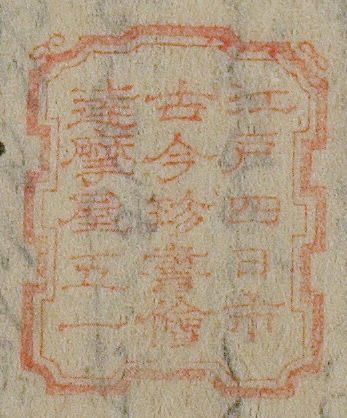 江戸四日市
古今珍書儈
達摩屋五一